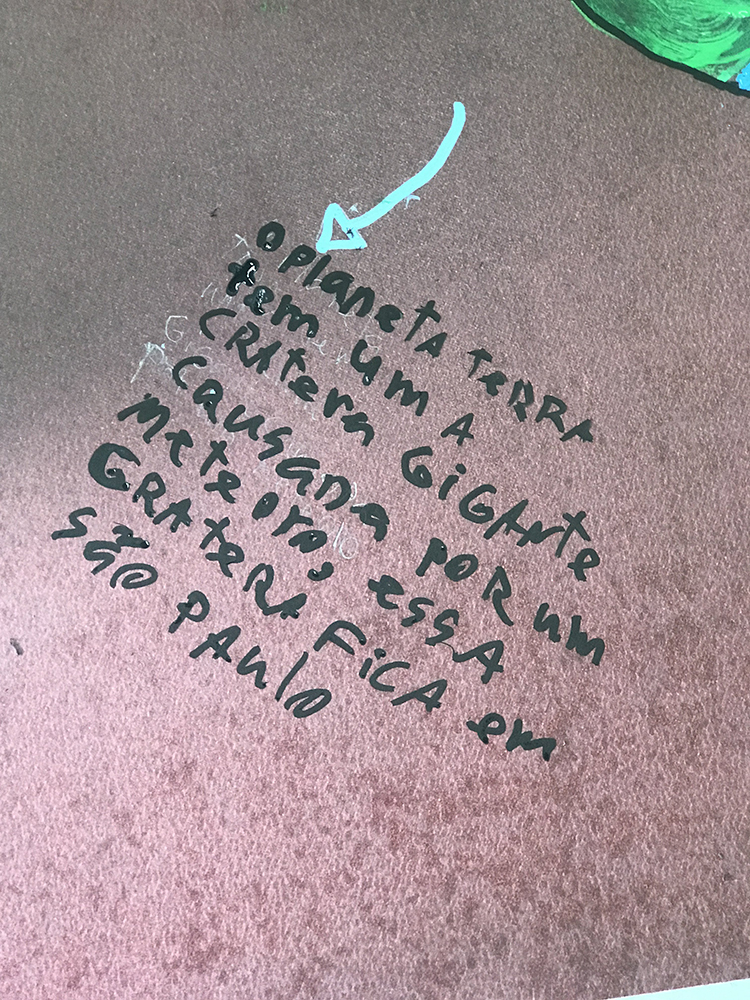 O PlanetA TeRRA
tem um A
CRAtera GiGANte
CAUSADA POR um
meteoro, essA
GRATERA FiCA em
São PAulo